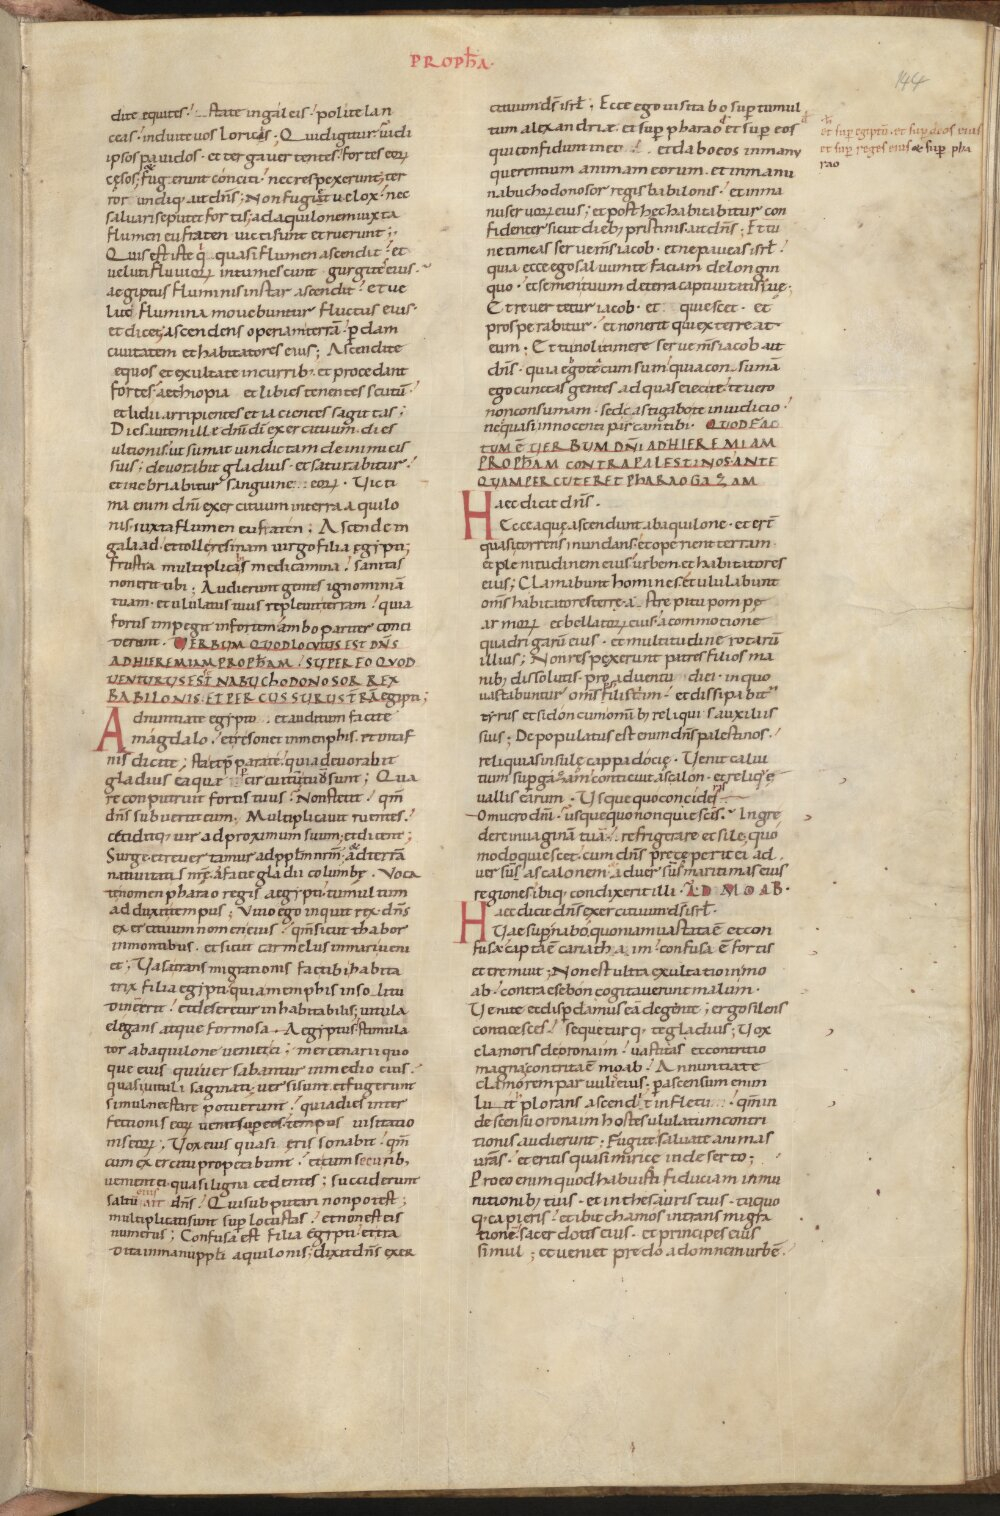 PROPħA·
144
dite equites! State in galeis! polite lan
ceas· induite vos loricis; Quid igitur! vidi
ipsos pavidos· et terga vertentes! fortes eoꝝ
cęsos; fugerunt conciti! nec respexerunt; ter
ror undiq; ait dn̄s; Non fugiat velox! nec
salvari se putet fortis; ad aquilonem iuxta
flumen eufraten victi sunt et ruerunt;
Quis est iste qi quasi flumen ascendit! et
veluti fluvioꝝ intumescunt gurgites eius·
aegiptus fluminis instar ascendit! et ve
lut flumina movebuntur fluctus eius·
et dicet; ascendens operiam terrā· pdam
civitatem et habitatores eius; Ascendite
equos et exultate in curribꝫ· et procedant
fortes! aethiopia et libies tenentes scutū!
et lidii arripientes et iacientes sagittas;
Dies autem ille dn̄i dī exercituum· dies
ultionis! ut sumat vindictam de inimicis
suis; devorabit gladius· et saturabitur!
et inebriabitur sanguine eoꝝ· Victi
ma enim dn̄i exercituum in terra aquilo
nis· iuxta flumen eufraten; Ascende in
galaad· et tolle resinam virgo filia egypti;
frustra multiplicas medicamina! sanitas
non erit tibi; Audierunt gentes ignominiā
tuam· et ululatus tuus replevit terram! quia
fortis impegit in fortem! ambo pariter conci
derunt· VERBUM QUOD LOCUTUS EST DN̄S
AD HIEREMIAM PROPħAM! SUPER EO QUOD
VENTURUS EST NABUCHODONOSOR REX
BABILONIS· ET PERCUSSURUS TRĀ Egipti;
Adnuntiate egypto· et auditum facite
magdalo! et resonet in memphis· et in taf
nis dicite; sta et ppara te! quia devorabit
gladius ea quę circuitu tuo sunt; Qua
re conputruit fortis tuus! Non stetit! qm̄
dn̄s subvertit eum; Multiplicavit ruentes!
ceciditq; vir ad proximum suum; et dicent;
Surge et revertamur ad pplm̄ nr̄m! & ad terrā
nativitatis nr̄ę a facie gladii columbę· Voca
te nomen pharao regis aegypti! tumultum
adduxit tempus; Vivo ego inquit rex· dn̄s
exercituum nomen eius! qm̄ sicut thabor
in montibus· et sicut carmelus in mari veni
et; Vasa transmigrationis fac tibi habita
trix filia egypti! quia memphis in solitu
dinē erit! et deseretur inhabitabilis; vitula
elegans atque formosa· Aegyptus! stimula
tor ab aquilone veniet ei; mercenarii quo
que eius qui versabantur in medio eius!
quasi vituli saginati versi sunt et fugerunt
simul nec stare potuerunt! quia dies inter
fectionis eoꝝ venit sup eos! tempus visitatio
nis eoꝝ; Vox eius quasi ęris sonabit! qm̄
cum exercitu properabunt! et cum securibꝫ
venient ei quasi ligna cedentes; succiderunt
saltū eius ait dn̄s! Qui subputari non potest;
multiplicati sunt sup locustas! et non est eis
numerus; Confusa est filia egypti! et tra
dita in manu ppli aquilonis; dixit dn̄s exer
cituum dī isrł; Ecce ego visitabo sup tumul
tum alexandriæ et sup pharao et sup eos
qui confidunt in eo! et dabo eos in manu
querentium animam eorum· et in manu
nabuchodonosor regis babilonis! et in ma
nu servoꝝ eius; et post hęc habitabitur con
fidenter sicut diebꝫ pristinis· ait dn̄s; Et tu
ne timeas serve m̄s iacob· et ne paveas isrł!
quia ecce ego salvum te faciam de longin
quo· et semen tuum de terra captivitatis suę;
Et revertetur iacob· et quiescet· et
prosperabitur· et non erit qui exterreat
eum; Et tu noli timere serve m̄s iacob ait
dn̄s· quia ego tecum sum! quia consumā
ego cunctas gentes ad quas eieci te! te vero
non consumam· sed castigabo te in iudicio!
nec quasi innocenti parcam tibi· QUOD FAC
TUM Ē VERBUM DN̄I AD HIEREMIAM
PROPħAM CONTRA PALESTINOS· ANTE
QUAM PERCUTERET PHARAO GAZAM
Haec dicit dn̄s·
Ecce aquę ascendunt ab aquilone· et er̄t
quasi torrens inundans! et operient terram
et plenitudinem eius! urbem et habitatores
eius; Clamabunt homines! et ululabunt
om̄s habitatores terrę a strepitu pompę
armoꝝ et bellatoꝝ eius! a commotione
quadrigarū eius· et multitudine rotarū
illius; Non respexerunt patres filios ma
nibꝫ dissolutis· pro adventu diei· in quo
vastabuntur om̄s filistiim· et dissipabit
tyrus et sidon cum omnibꝫ reliquis auxiliis
suis; Depopulatus est enim dn̄s palestinos·
reliquias insulę cappadocię· Venit calvi
tium sup gazam! conticuit ascalon· et reliquię
vallis earum· Usque quo concideris
O mucro dn̄i· usque quo non quiescis· Ingre
dere in vaginā tuā! refrigerare et sile; quo
modo quiescet! cum dn̄s pręceperit ei ad
versus ascalonem! adversus maritimas eius
regiones ibiq; condixerit illi· AD MOAB·
Haec dicit dn̄s exercituum dī isrł·
Vae sup nabo quoniam vastata ē et con
fusa! capta ē cariathaim! confusa ē fortis
et tremuit; Non est ultra exultatio in mo
ab· contra esebon cogitaverunt malum·
Venite et disperdamus eā de gente; ergo silens
conticesces! sequeturq; te gladius; Vox
clamoris de oronaim! vastitas et contritio
magna! contrita ē moab! Annuntiate
clamorem parvulis eius! p ascensum enim
luit plorans ascendit in fletu! qm̄ in
descensu oronaim hostes ululatum contri
tionis audierunt; Fugite! salvate animas
vr̄as· et eritis quasi mirice in deserto;
Pro eo enim quod habuisti fiduciam in mu
nitionibꝫ tuis· et in thesauris tuis· tu quo
q; capieris! et ibit chamos in transmigra
tionē! sacerdotes eius· et principes eius
simul; et veniet prędo ad omnem urbē·
et sup egiptū· et sup deos eius
et sup reges eius & sup pha
rao